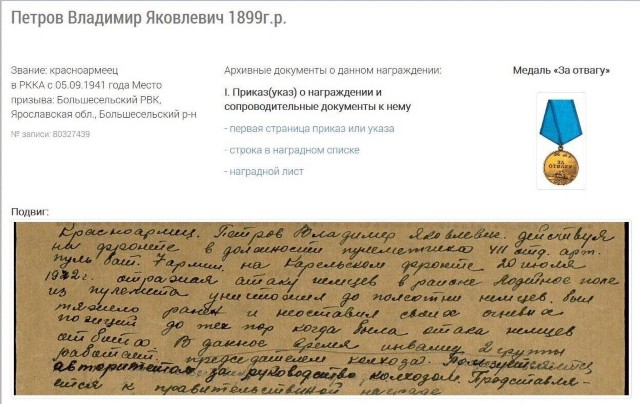 Петров Владимир Яковлевич 1899г.р.
Звание: красноармеец
в РККА с 05.09.1941 года Место
призыва: Большесельский РВК,
Ярославская обл., Большесельский р-н
№ записи: 80327439
Архивные документы о данном награждении:
I. Приказ(указ) о награждении и
сопроводительные документы к нему
- первая страница приказ или указа
- строка в наградном списке
- наградной лист
Медаль «За отвагу»
ЗА
ОТВАГУ
Подвиг:
Красноармец. Петров Владимир Яковлевич. действуя
на фронте в должности пулеметчика VII отд. арт.
пуль. бат. 7 армии. на Карельском фронте 20 июля
1942г. отражая атаку немцев в районе Лодейное поле
из пулемета уничтожил до полсотни немцев. был
тяжело ранен и неоставил своих огневых
позиций до тех пор когда была атака немцев
отбита. В данное время инвалид 2 группы
работает председателем колхоза. Пользуется
авторитетом за руководство колхозом. Представля-
ется к правительственной награде